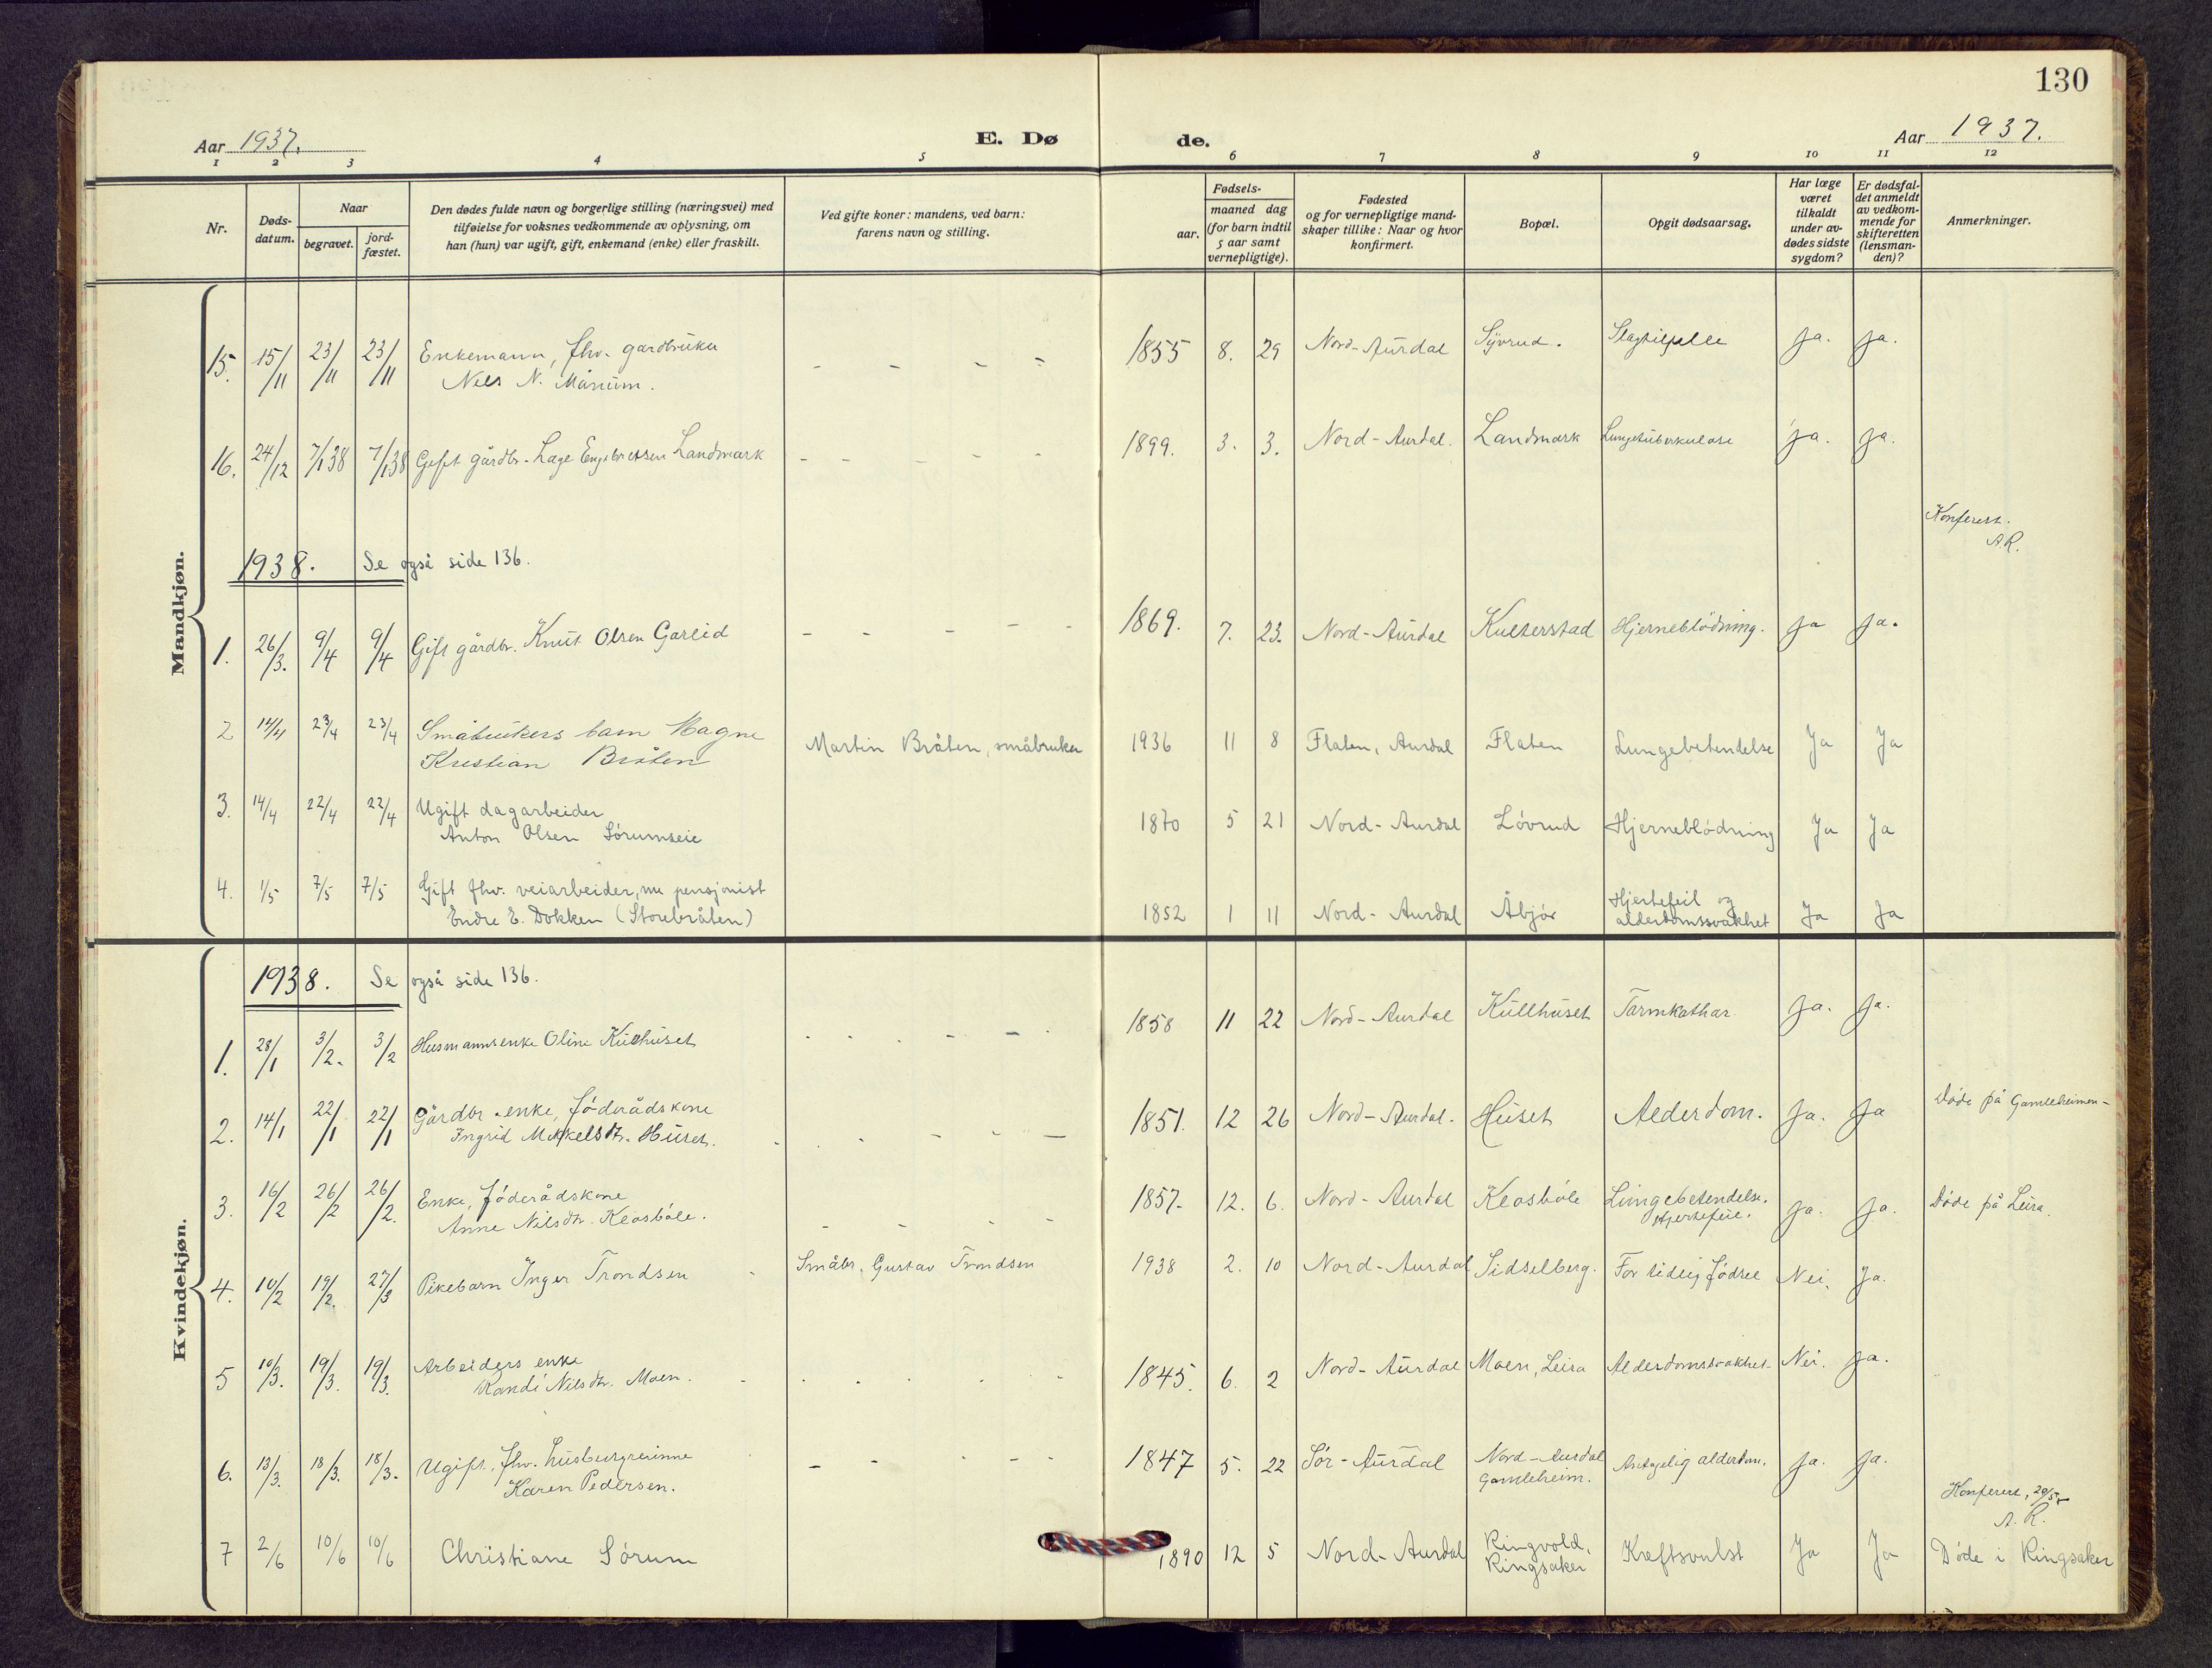 130
Aar 1937.
E. Dø
de.
Aar 1937.
1 2 3 4 5 6 7 8 9 10 11 12
Nr.
Døds-
datum.
Naar
begravet.
jord-
fæstet.
Den dødes fulde navn og borgerlige stilling (næringsvei) med
tilføielse for voksnes vedkommende av oplysning, om
han (hun) var ugift, gift, enkemand (enke) eller fraskilt.
Ved gifte koner: mandens, ved barn:
farens navn og stilling.
Fødsels-
aar.
maaned dag
(for barn indtil
5 aar samt
vernepligtige).
Fødested
og for vernepligtige mand-
skaper tillike: Naar og hvor
konfirmert.
Bopæl.
Opgit dødsaarsag.
Har læge
været
tilkaldt
under av-
dødes sidste
sygdom?
Er dødsfal-
det anmeldt
av vedkom-
mende for
skifteretten
(lensman-
den)?
Anmerkninger.
Mandkjøn.
15. 15/11 23/11 23/11 Enkemann, fhv. gardbruker
Nils N. Månum. - - - - 1855 8. 29 Nord-Aurdal Syvrud. Slagtilfelle ja. ja.
16. 24/12 7/1 38 7/1 38 Gift gårdbr. Lage Engebretsen Landmark - - - - - 1899. 3. 3. Nord-Aurdal. Landmark Lungetuberkulose ja. ja.
Konferert.
A.R.
1938. Se også side 136.
1. 26/3. 9/4 9/4 Gift gårdbr. Knut Olsen Garlid - - - - - 1869. 7. 23. Nord-Aurdal Kulterstad Hjerneblödning. ja ja.
2 14/4 23/4 23/4 Småbrukers barn Magne
Kristian Bråten Martin Bråten, småbruker 1936 11 8 Flaten, Aurdal Flaten Lungebetendelse Ja Ja
3. 14/4 22/4 22/4 Ugift dagarbeider
Anton Olsen Sörumseie 1870 5 21 Nord-Aurdal Lövrud Hjerneblödning Ja Ja
4. 1/5 7/5 7/5 Gift fhv. veiarbeider, nu pensjonist
Endre E. Dokken (Storebråten) 1852 1 11 Nord-Aurdal Åbjör Hjertefeil og
alderdomssvakhet Ja Ja
Kvindekjøn.
1938. Se også side 136.
1. 28/1 3/2. 3/2 Husmannsenke Oline Kullhuset - - - - - 1858 11 22 Nord-Aurdal Kullhuset Tarmkathar ja. ja.
2. 14/1 22/1 22/1 Gårdbr.enke, föderådskone
Ingrid Mikkelsdtr. Huset. - - - - - 1851. 12 26 Nord-Aurdal. Huset Alderdom. ja. ja Döde på Gamleheimen-
3. 16/2 26/2 26/2. Enke, föderådskone
Anne Nilsdtr. Klosböle. - - - - 1857. 12. 6. Nord-Aurdal Klosböle Lungebetendelse.
Hjertefeil. ja. ja. Döde på Leira.
4. 10/2 19/2. 27/3 Pikebarn Inger Trondsen - Småbr. Gustav Trondsen 1938 2. 10 Nord-Aurdal Sidselberg. For tidlig födsel Nei. Ja.
5 10/3. 19/3. 19/3. Arbeiders enke
Randi Nilsdtr. Moen. - - - - - 1845. 6. 2 Nord-Aurdal Moen, Leira Alderdomssvakhet Nei. ja.
6. 13/3. 18/3. 18/3. Ugift, fhv. husbestyrerinne
Karen Pedersen. - - - - - 1847 5. 22 Sör-Aurdal Nord-Aurdal
Gamleheim. Antagelig alderdom. ja. ja.
Konferert, 20/5
A.R.
7 2/6 10/6 10/6 Christiane Sörum 1890 12 5 Nord-Aurdal Ringvold,
Ringsaker Kreftsvulst Ja Ja Döde i Ringsaker